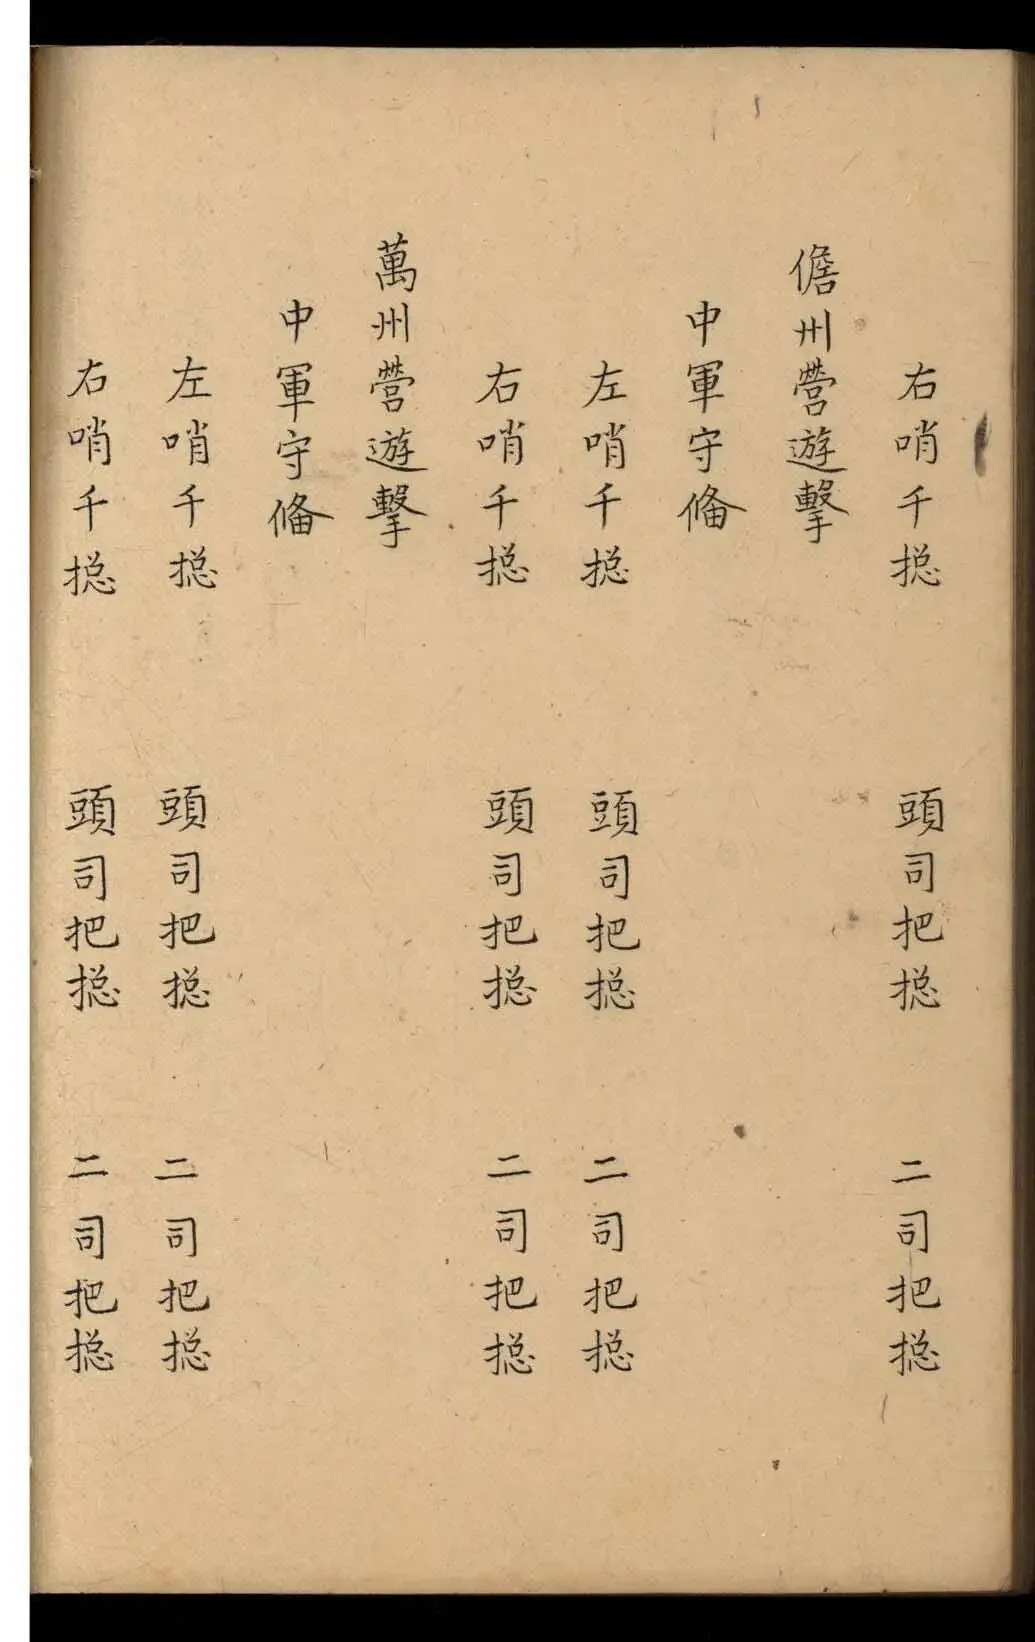 右哨千摠 頭司把摠 二司把摠
儋州營遊擊
中軍守備
左哨千摠 頭司把摠 二司把摠
右哨千摠 頭司把摠 二司把摠
萬州營遊擊
中軍守備
左哨千摠 頭司把摠 二司把摠
右哨千摠 頭司把摠 二司把摠